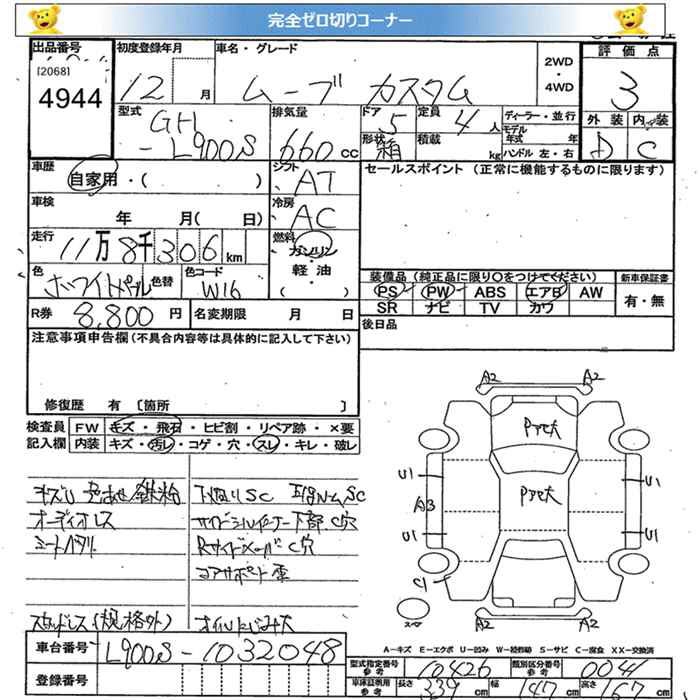 完全ゼロ切りコーナー
出品番号
[2068]
4944
初度登録年月
12 月
車名・グレード
ムーブ カスタム
2WD
・
4WD
評価点
3
外装 内装
D C
型式
GH
-L900S
排気量
660 cc
ドア
5
定員
4 人
形状
箱
積載
kg
ディーラー・並行
モデル
年式 年
ハンドル 左・右
車歴
自家用・( )
シフト
AT
セールスポイント (正常に機能するものに限ります)
車検
年 月( 日)
冷房
AC
走行
11万8千306km
燃料
ガソリン
・
軽油
・
( )
色
ホワイトパール
色替
色コード
W16
装備品(純正品に限り○をつけてください)
新車保証書
PS PW ABS エアB AW
SR ナビ TV カワ
有・無
R券 8,800 円
名変期限 月 日
後日品
注意事項申告欄(不具合内容等は具体的に記入して下さい)
修復歴 有 〔箇所 〕
検査員
記入欄
FW キズ・飛石・ヒビ割・リペア跡・×要
内装 キズ・汚レ・コゲ・穴・スレ・キレ・破レ
キズU 色あせ 鉄粉
オーディオレス
シートヘタリ
スタッドレス(規格外)
下廻りSC
下部 C穴
C穴
オイルにじみ大
A2 A2
Pアセ大
Pアセ大
U1 U1
A3
U1 U1
C1
スペア
A2 A2
A-キズ E-エクボ U-凹み W-補修跡 S-サビ C-腐食 XX-交換済
車台番号
L900S-1032048
登録番号
型式指定番号
参考
10426
類別区分番号
参考
0041
車庫証明用
参考
長さ 339 cm
幅 147 cm
高さ 167 cm